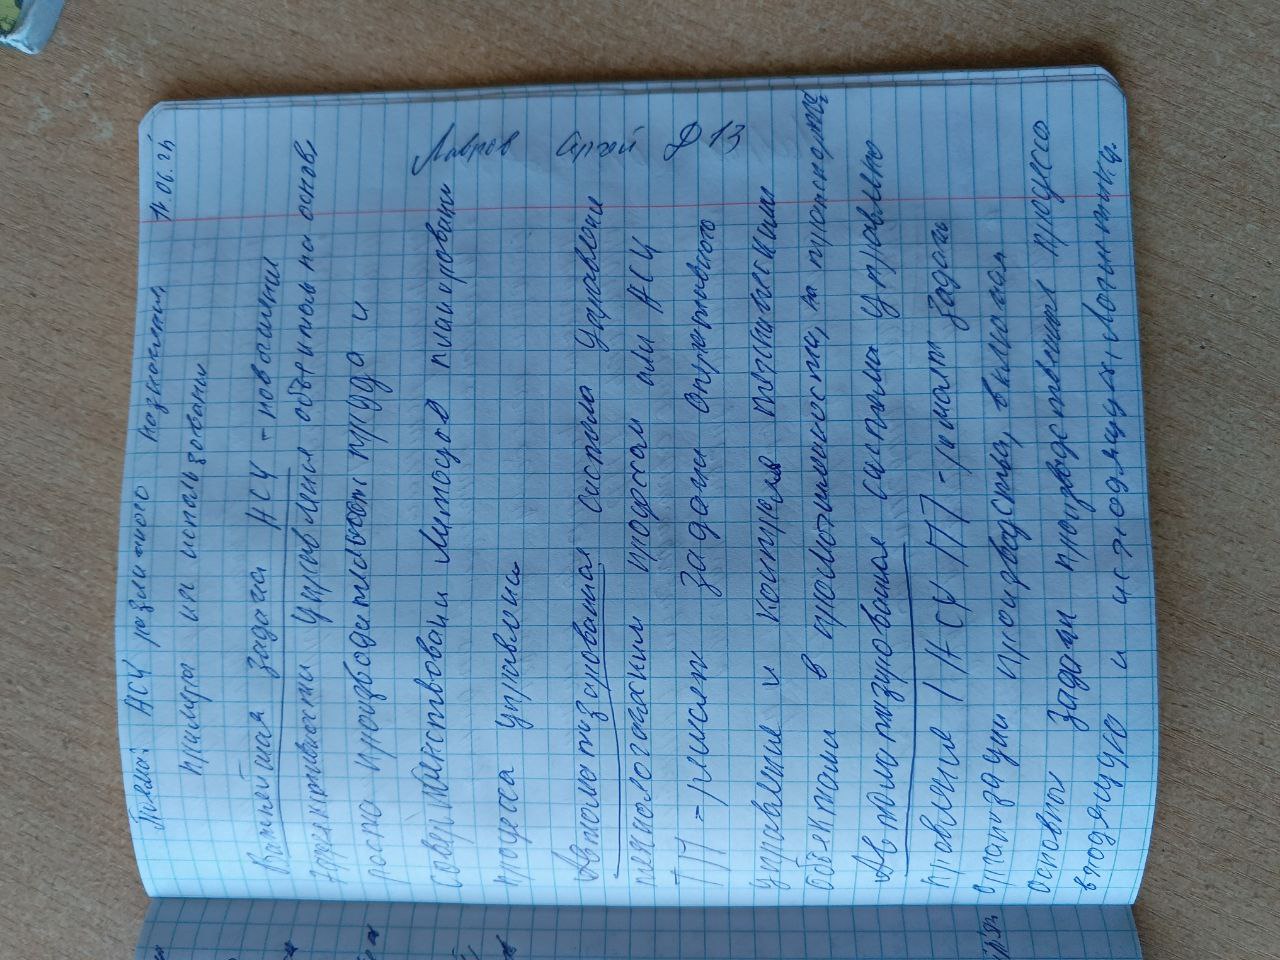 Тема: АСУ различного назначения 14.06.24
примера их использовани
Важнейшая задача АСУ - повышение
эффективности управления объектом на основ,
роста производительност труда и
Лавров Сргей Д13
совершенствовани методов планировани
процесса управлени
Автоматизированая система Управлени
технологическим процесом или АСУ
ТП - решает задачи оперативного
управление и контроля техническими
объектами в промышленности, на транспорте
Автоматизированая система Управлению
АСУ ПП - решает задачи
организации производства, включая
основны задачи производственных процесса
входящую и исходящую логистику.